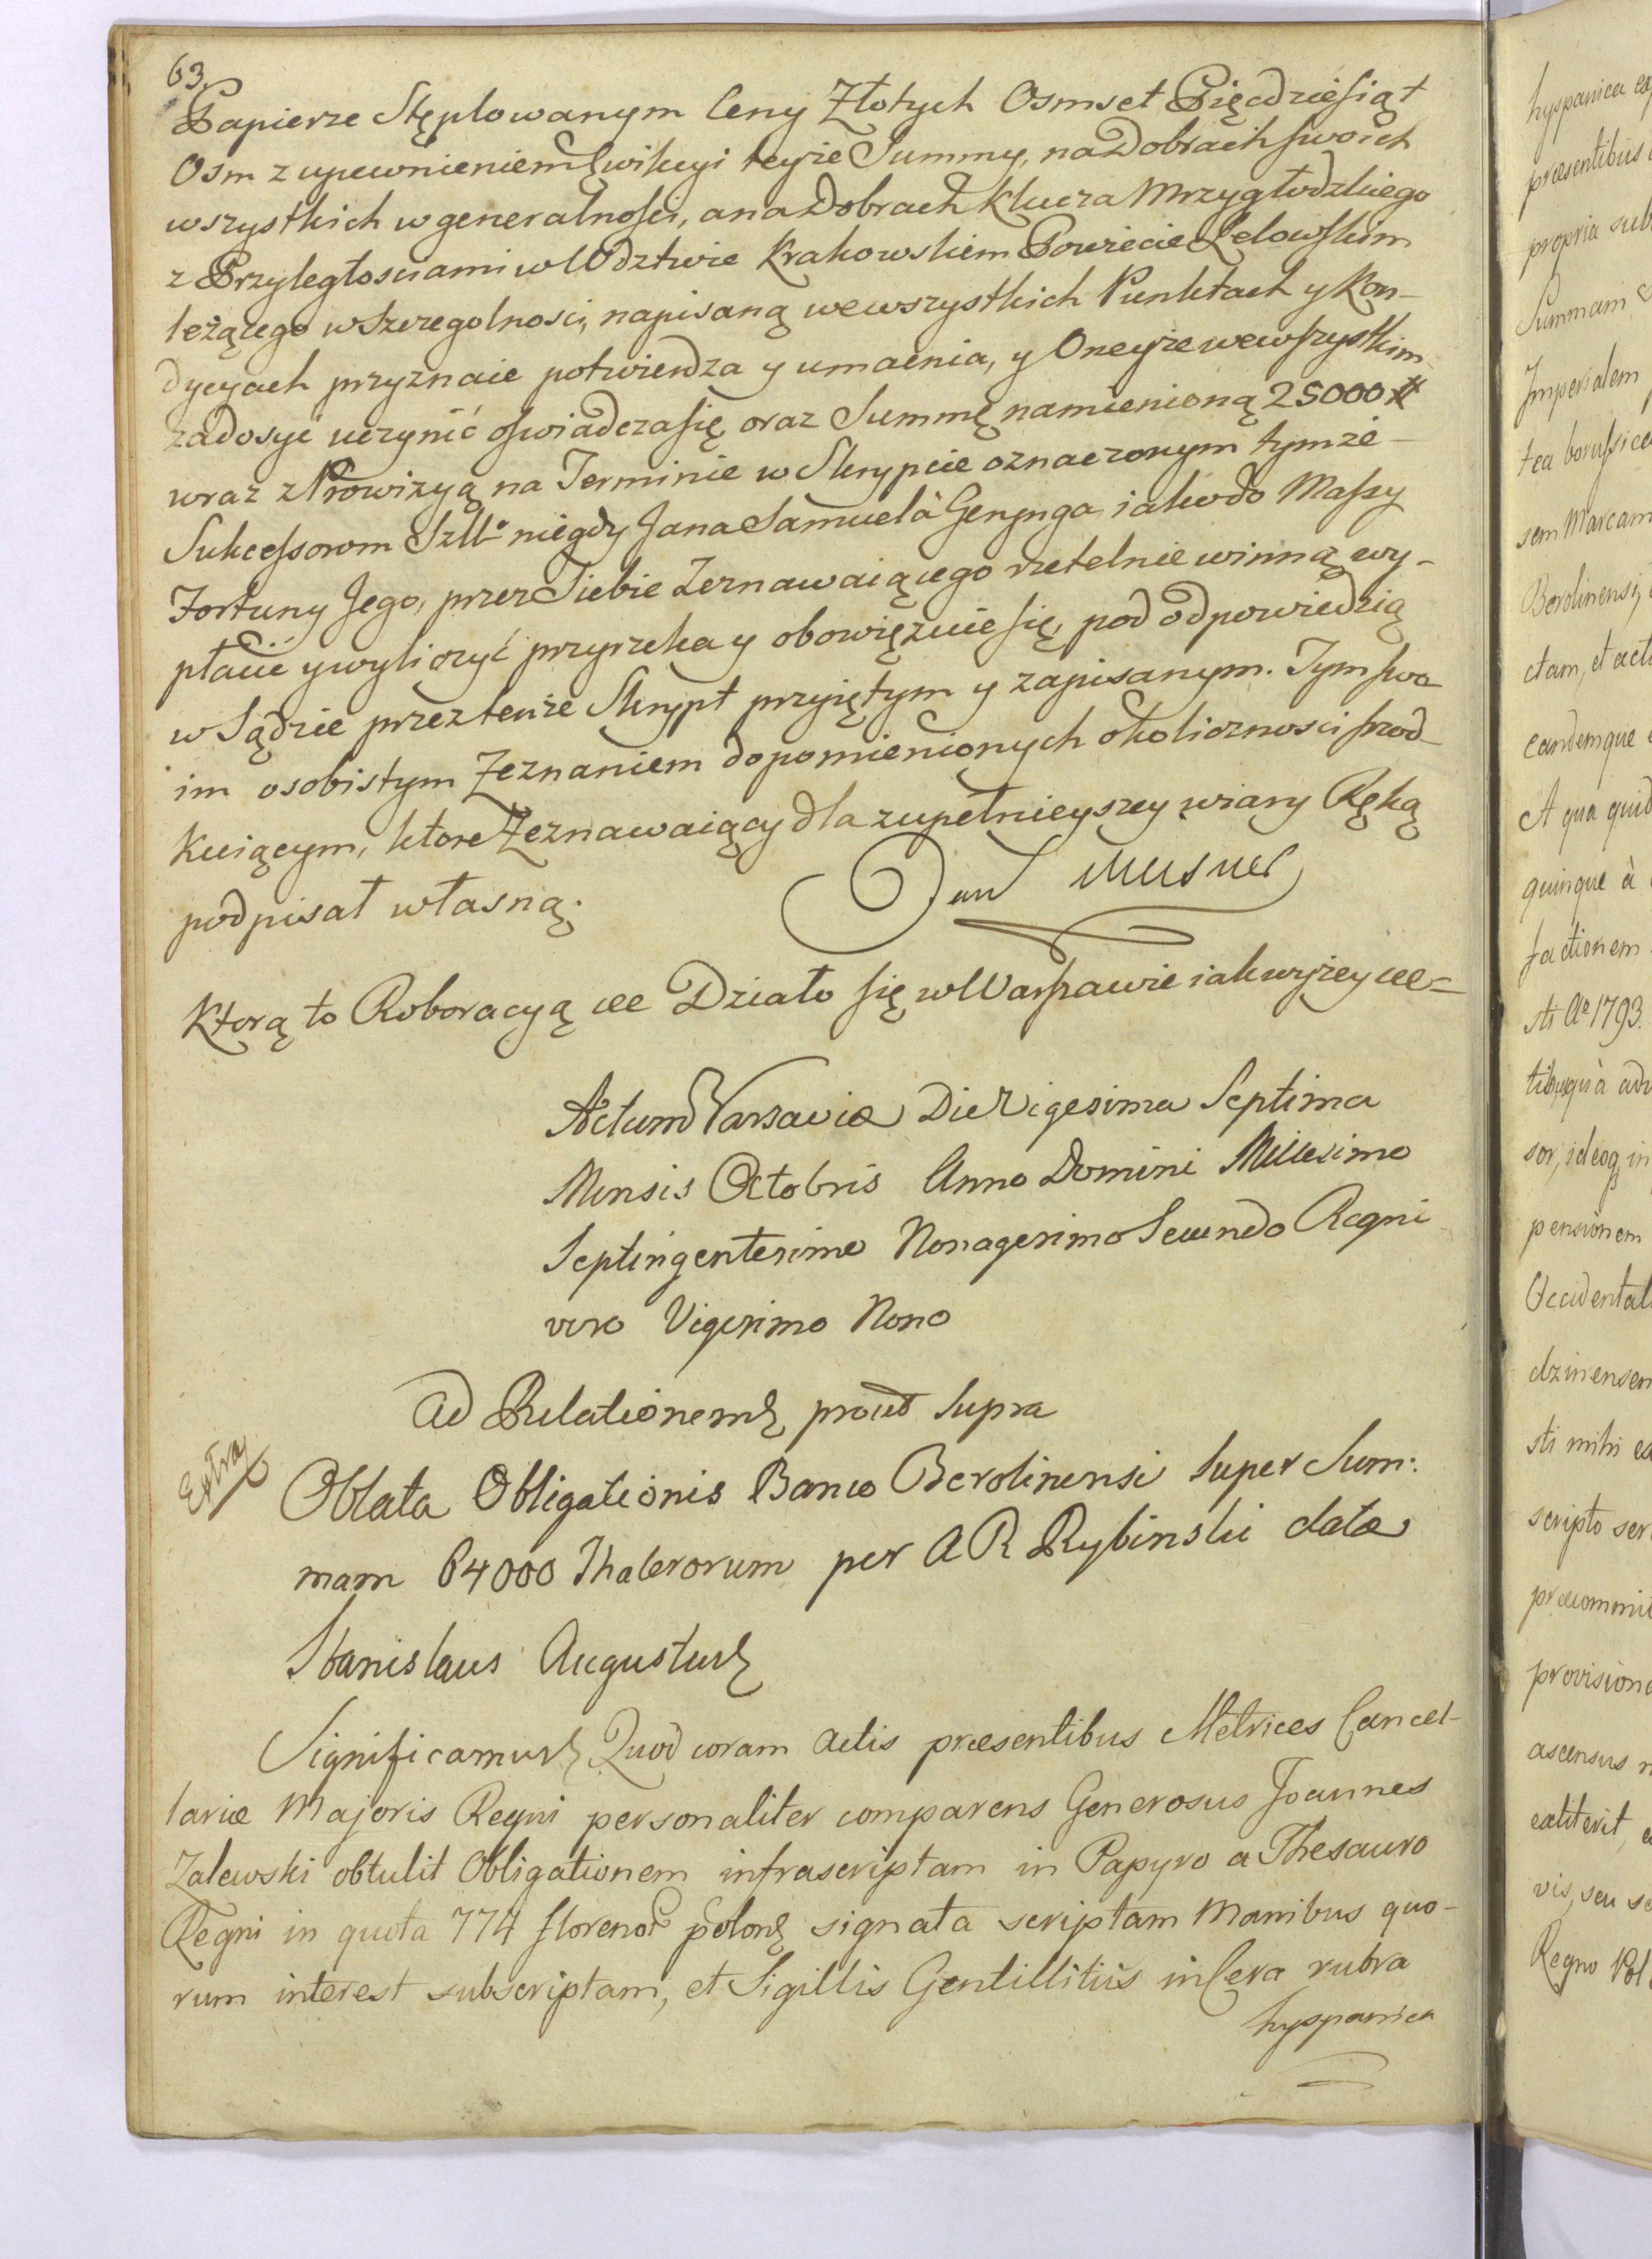 63.
Papierze Stęplowanym Ceny Złotych Osmset Pięcdziesiąt
Osm z upewnieniem Ewikcyi teyże Summy, na Dobrach swoich
wszystkich w generalności, a na Dobrach Klucza Mrzygłodzkiego
z Przyległosciami w Wdztwie Krakowskiem Powiecie Lelowskim
leżącego w Szczegolnosci, napisaną we wszystkich Punktach y Kon-
dycyach przyznaie potwierdza y umacnia, y Oneyże we wszystkim
zadosyć uczynić oswiadcza się oraz Summę namienioną 25000 #
wraz z Prowizyą na Terminie w Skrypcie oznaczonym tymże
Sukcessorom Szltº niegdy Jana Samuela Genynga iako do Massy
Fortuny Jego, przez Siebie Zeznawaiącego rzetelnie winną wy-
płacić y wyliczyć przyrzeka y obowięzuie się, pod odpowiedzią
w Sądzie przez tenże Skrypt przyiętym y zapisanym. Tym swo-
im osobistym Zeznaniem dopomienionych okoliczności srzod-
kuiącym, ktore Zeznawaiący dla zupełnieyszey wiary Ręką
podpisał własną.
Jan Meisner
Którą to Roboracyą &c Działo się w Warszawie iak wyżey &c=
Actum Varsaviæ Die Vigesima Septima
Mensis Octobris Anno Domini Millesimo
Septingentesimo Nonagesimo Secundo Regni
vero Vigesimo Nono
Ad Relationem prout Supra
Extra
Oblata Obligationis Banco Berolinensi Super Sum:
mam 64000 Thalerorum per A R Rybinski datæ
Stanislaus Augustus
Significamus Quod coram Actis præsentibus Metrices Cancel-
lariæ Majoris Regni personaliter comparens Generosus Joannes
Zalewski obtulit Obligationem infrascriptam in Papyro a Thesauro
Regni in quota 774 floreno polon signata scriptam Manibus quo-
rum interest subscriptam, et Sigillis Gentillitiis in Cera rubra
hyspanica
hyspanica
præsentibus
propria
Summam
Imperialem
tea borussice
sem Marcam
Berolinensi,
ctam, et
eandemque
A qua quid
quinque à
factionem
sti Aº 1793.
sor, ideoq in
pensionem
Occidental
dzinensem
sti mihi
scripto
provision
ascensus
extiterit,
vis, seu
Regno Pol